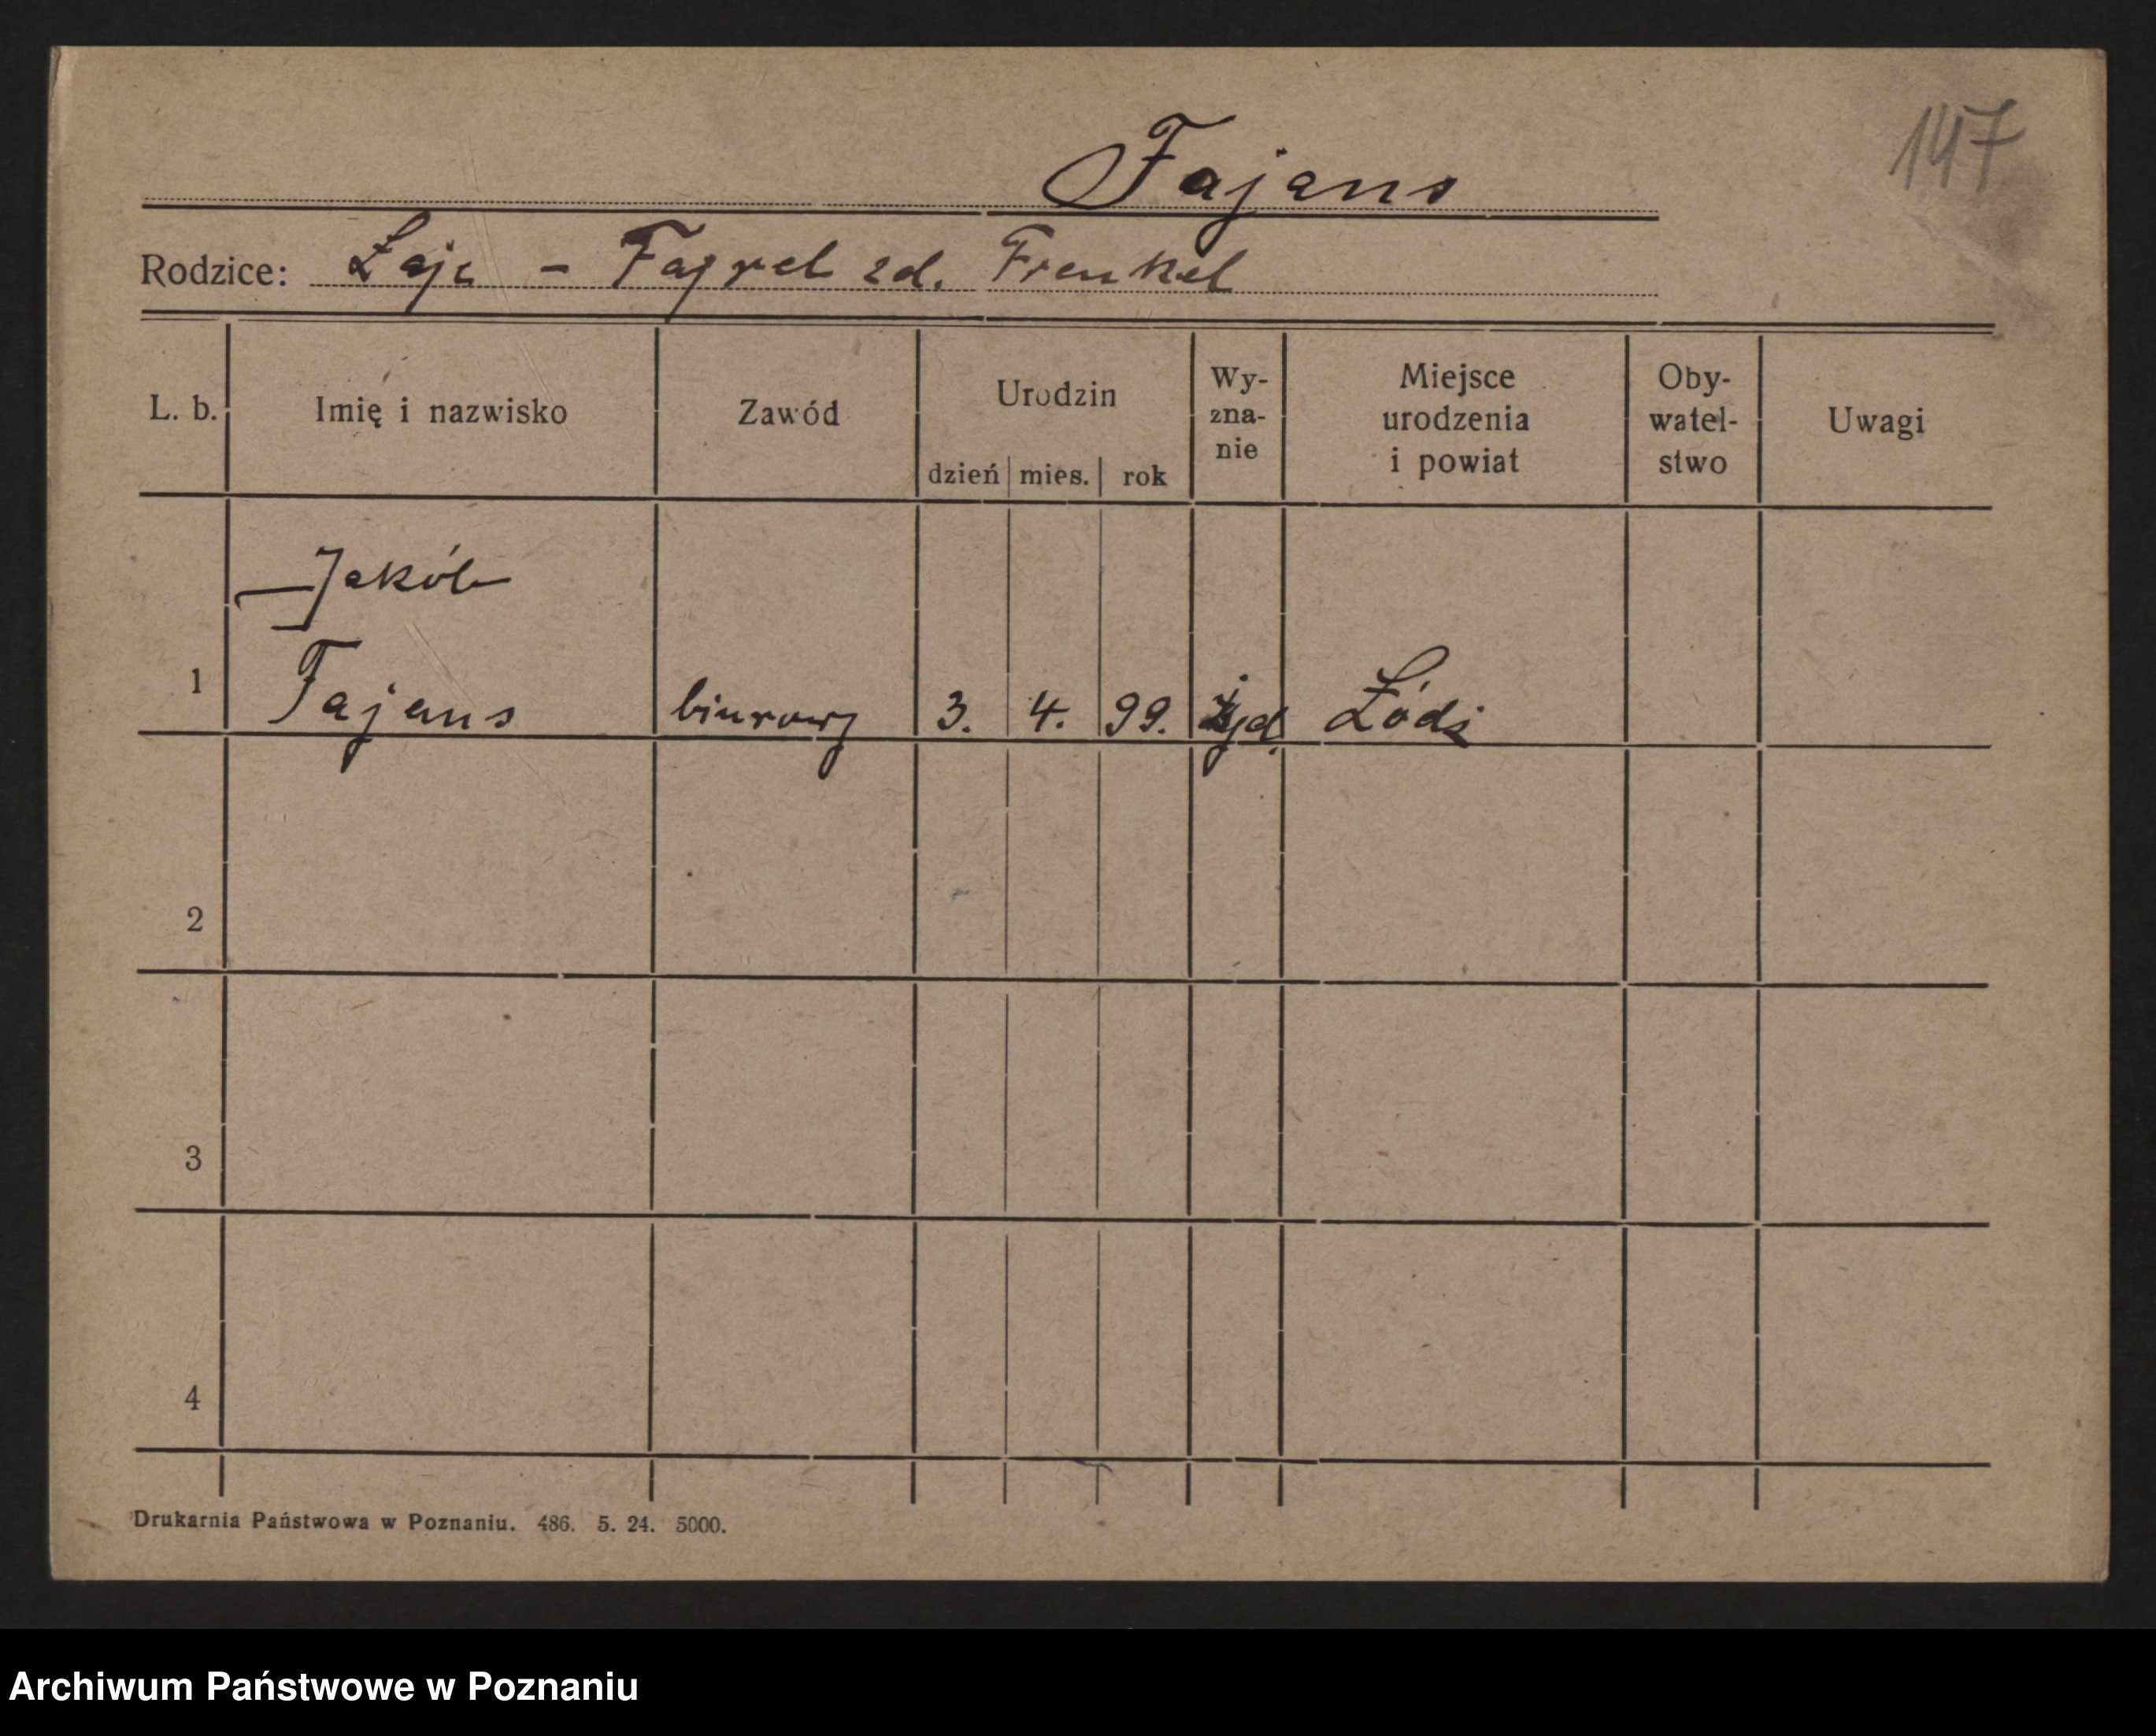 147
Fajans
Rodzice: - Fajrel zd. Frenkel
L. b. Imię i nazwisko Zawód Urodzin dzień mies. rok Wy-zna-nie Miejsce urodzenia i powiat Oby-watel-stwo Uwagi
Jakób
1 Fajans biurowy 3. 4. 99. żyd. Łódź
2
3
4
Drukarnia Państwowa w Poznaniu. 486. 5. 24. 5000.
Archiwum Państwowe w Poznaniu